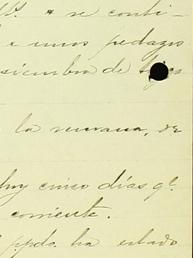 se conti-
e unos pedazos
siembra de
la semana, de
hoy cinco días qe.
corriente.
ppdo. ha estado